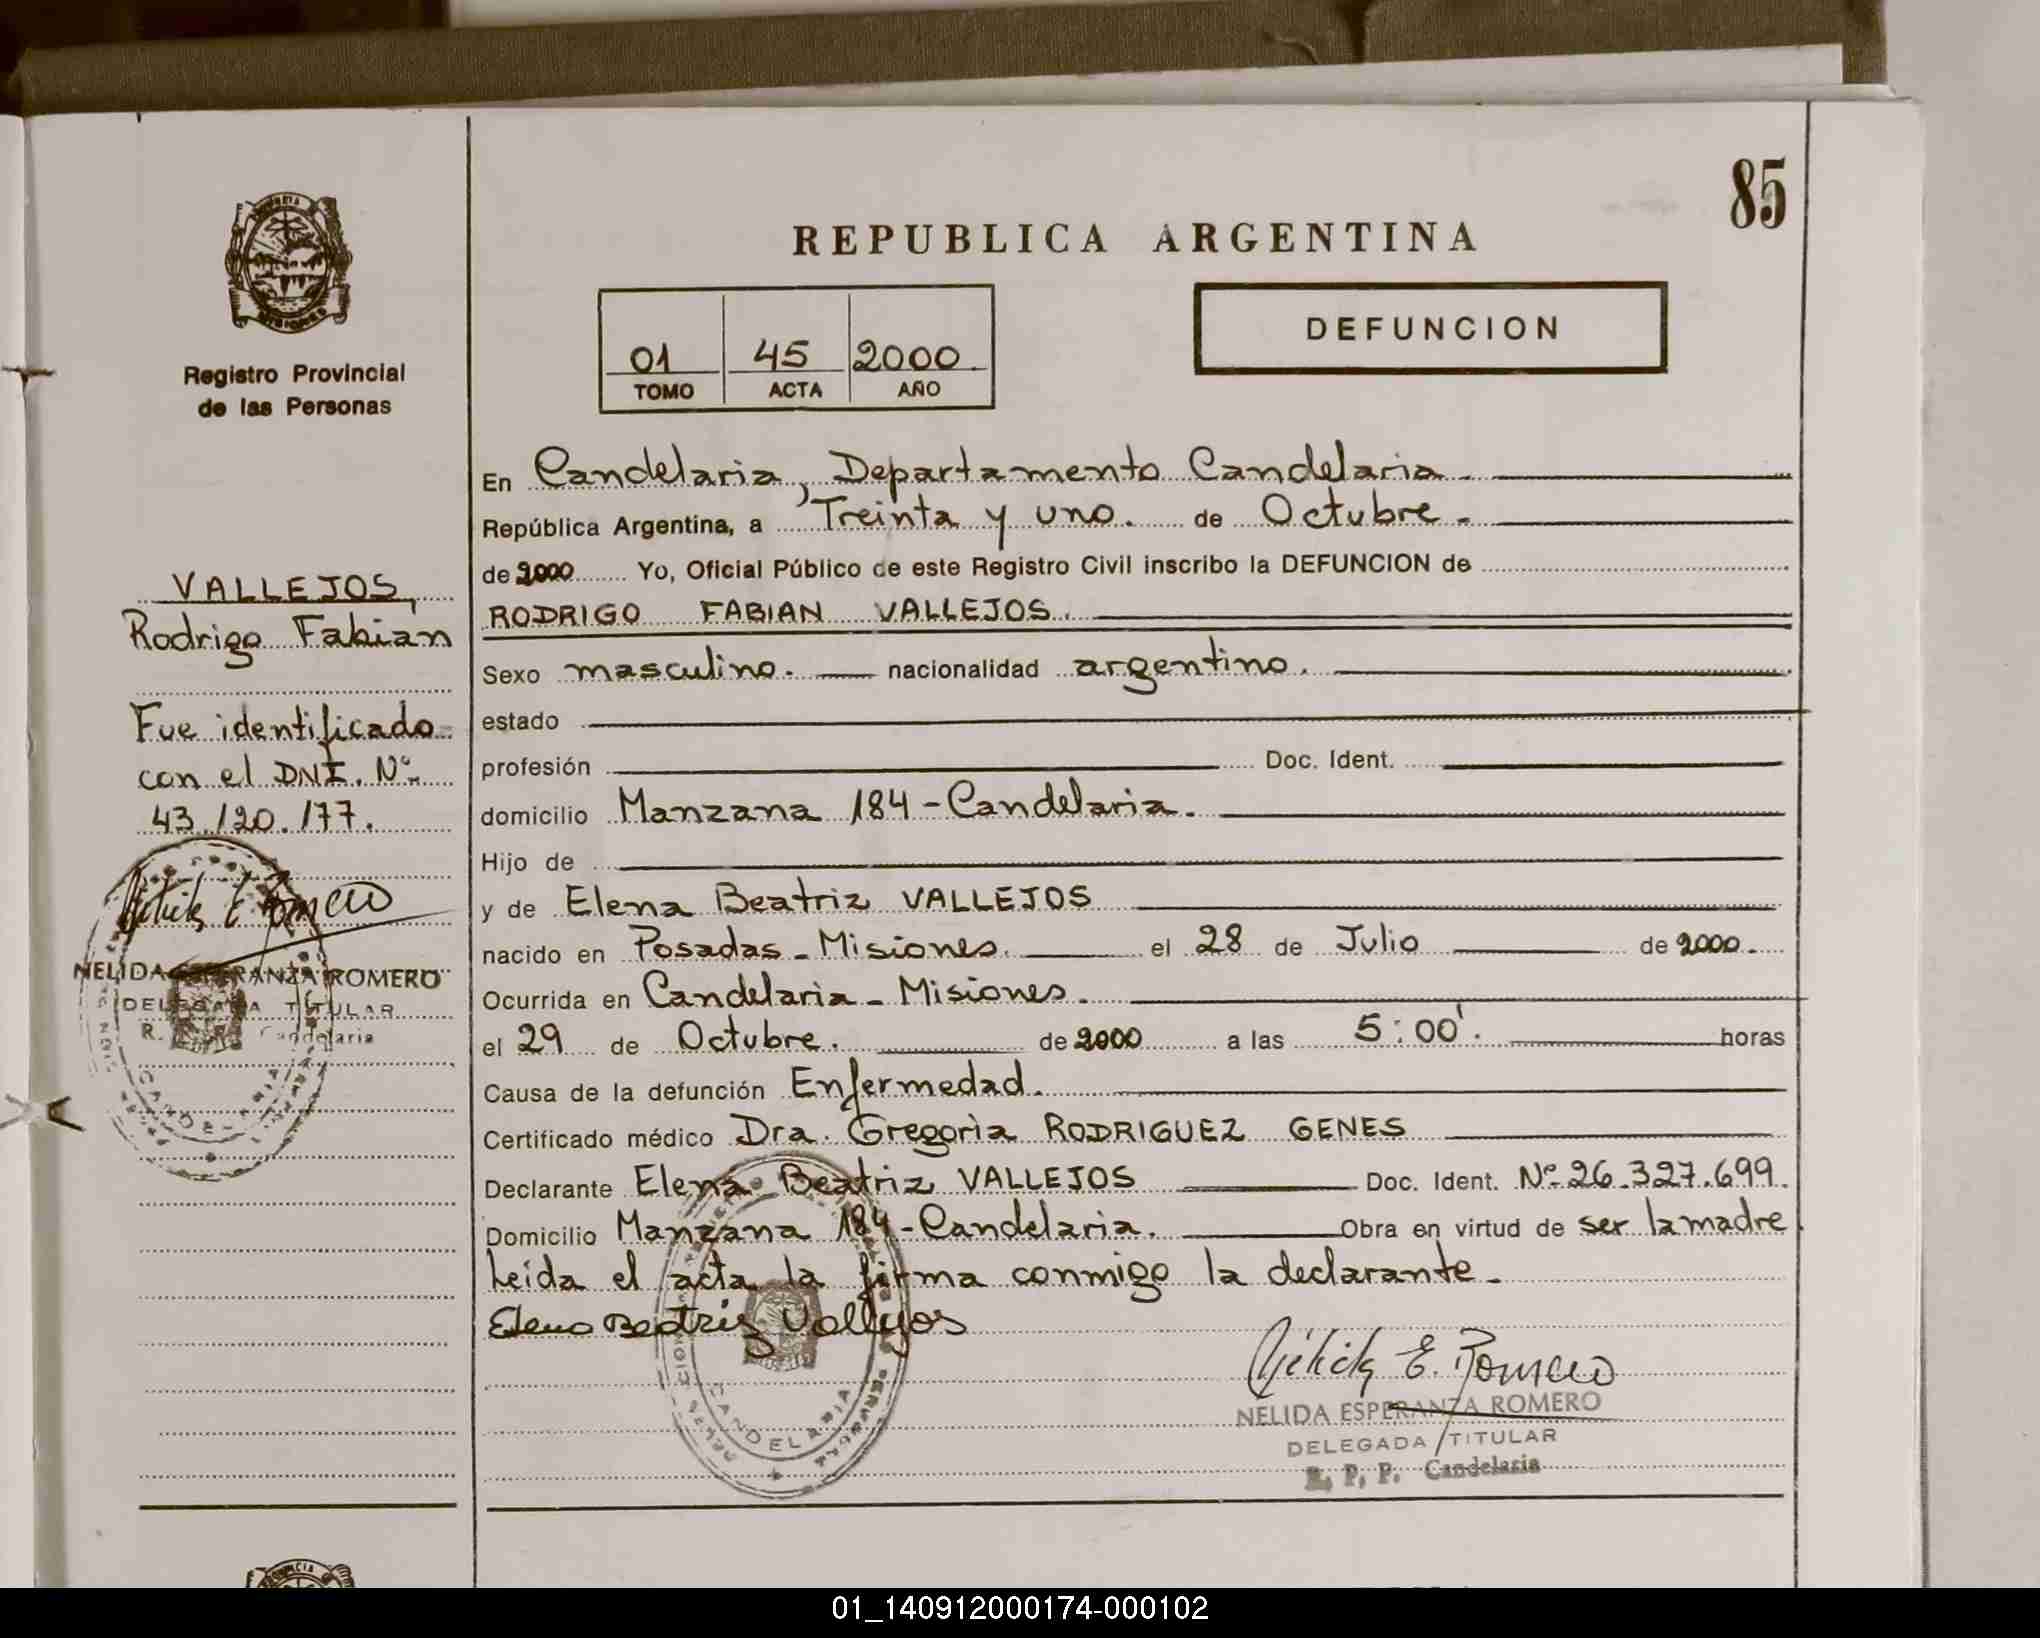 85
REPUBLICA ARGENTINA
DEFUNCION
01 45 2000
TOMO ACTA AÑO
Registro Provincial
de las Personas
VALLEJOS,
Rodrigo Fabián
Fue identificado
con el DNI. Nº
43.120.177.
NELIDA ESPERANZA ROMERO
DELEGADA TITULAR
R. Candelaria
CANDELARIA
En Candelaria, Departamento Candelaria.
República Argentina, a Treinta y uno. de Octubre.
de 2000 Yo, Oficial Público de este Registro Civil inscribo la DEFUNCION de
RODRIGO FABIAN VALLEJOS.
Sexo masculino. nacionalidad argentino.
estado
profesión Doc. Ident.
domicilio Manzana 184 - Candelaria.
Hijo de
y de Elena Beatriz VALLEJOS
nacido en Posadas - Misiones. el 28 de Julio de 2000.
Ocurrida en Candelaria - Misiones.
el 29 de Octubre. de 2000 a las 5:00'. horas
Causa de la defunción Enfermedad.
Certificado médico Dra. Gregoria RODRIGUEZ GENES
Declarante Elena Beatriz VALLEJOS Doc. Ident. Nº 26.327.699.
Domicilio Manzana 184 - Candelaria. Obra en virtud de ser la madre.
Leida el acta la firma conmigo la declarante.
Elena Beatriz Vallejos
CANDELARIA
Nélida E. Romero
NELIDA ESPERANZA ROMERO
DELEGADA TITULAR
R. P. P. Candelaria
01_140912000174-000102